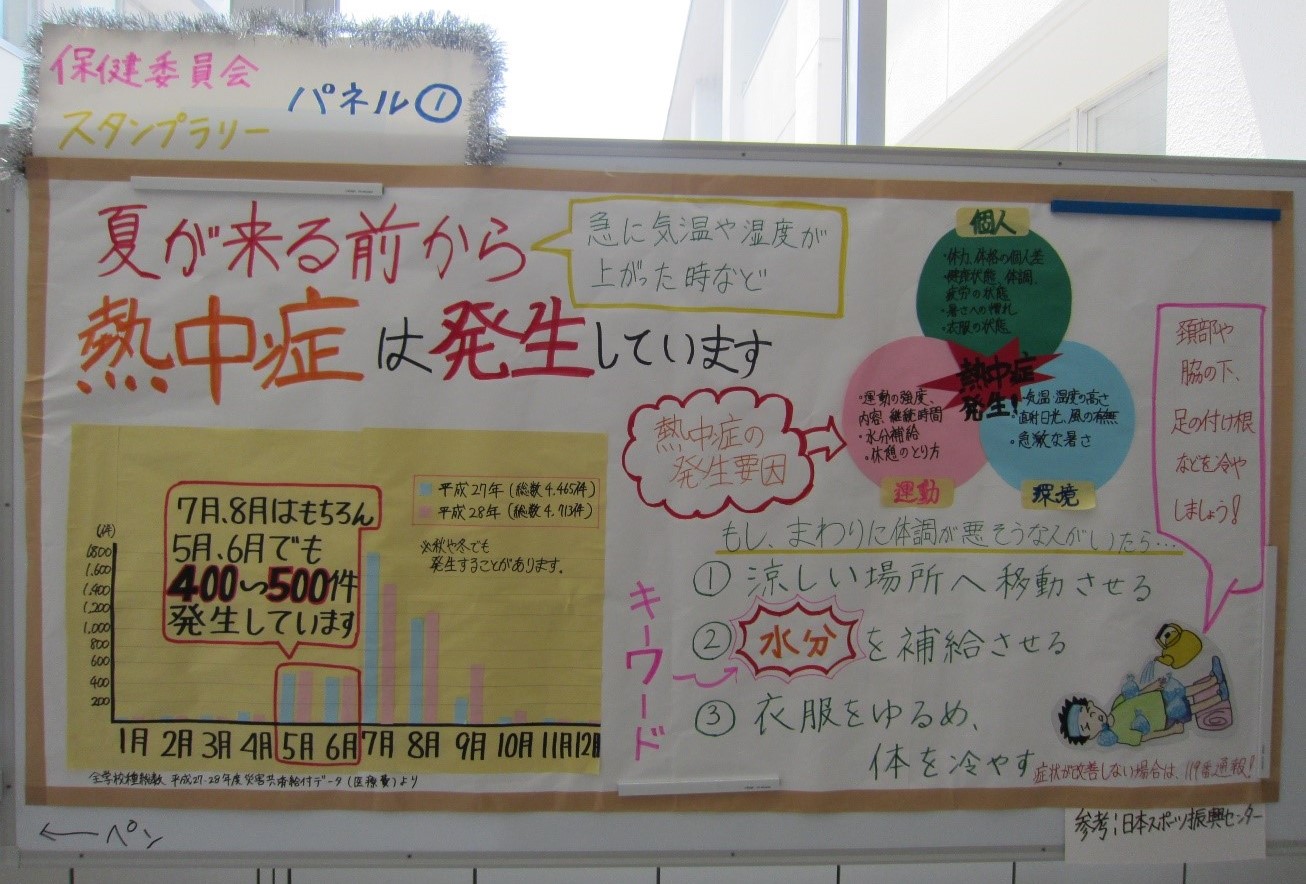 保健委員会
スタンプラリー
パネル①
夏が来る前から
熱中症は発生しています
急に気温や湿度が
上がった時など
7月、8月はもちろん
5月、6月でも
400〜500件
発生しています
平成27年 (総数 4.465件)
平成28年 (総数 4.713件)
※秋や冬でも
発生することがあります。
(件)
1.800
1.600
1.400
1.200
1.000
800
600
400
200
1月 2月 3月 4月 5月 6月 7月 8月 9月 10月 11月 12月
全学校種総数 平成27・28年度災害共済給付データ(医療費)より
熱中症の
発生要因
個人
・体力、体格の個人差
・健康状態、体調、
疲労の状態
・暑さへの慣れ
・衣服の状態
熱中症
発生!
・運動の強度、
内容、継続時間
・水分補給
・休憩のとり方
運動
・気温・湿度の高さ
・直射日光、風の有無
・急激な暑さ
環境
もし、まわりに体調が悪そうな人がいたら…
①涼しい場所へ移動させる
②水分を補給させる
③衣服をゆるめ、
体を冷やす
キーワード
頚部や
脇の下、
足の付け根
などを冷や
しましょう!
症状が改善しない場合は、119番通報!
←ペン
参考:日本スポーツ振興センター